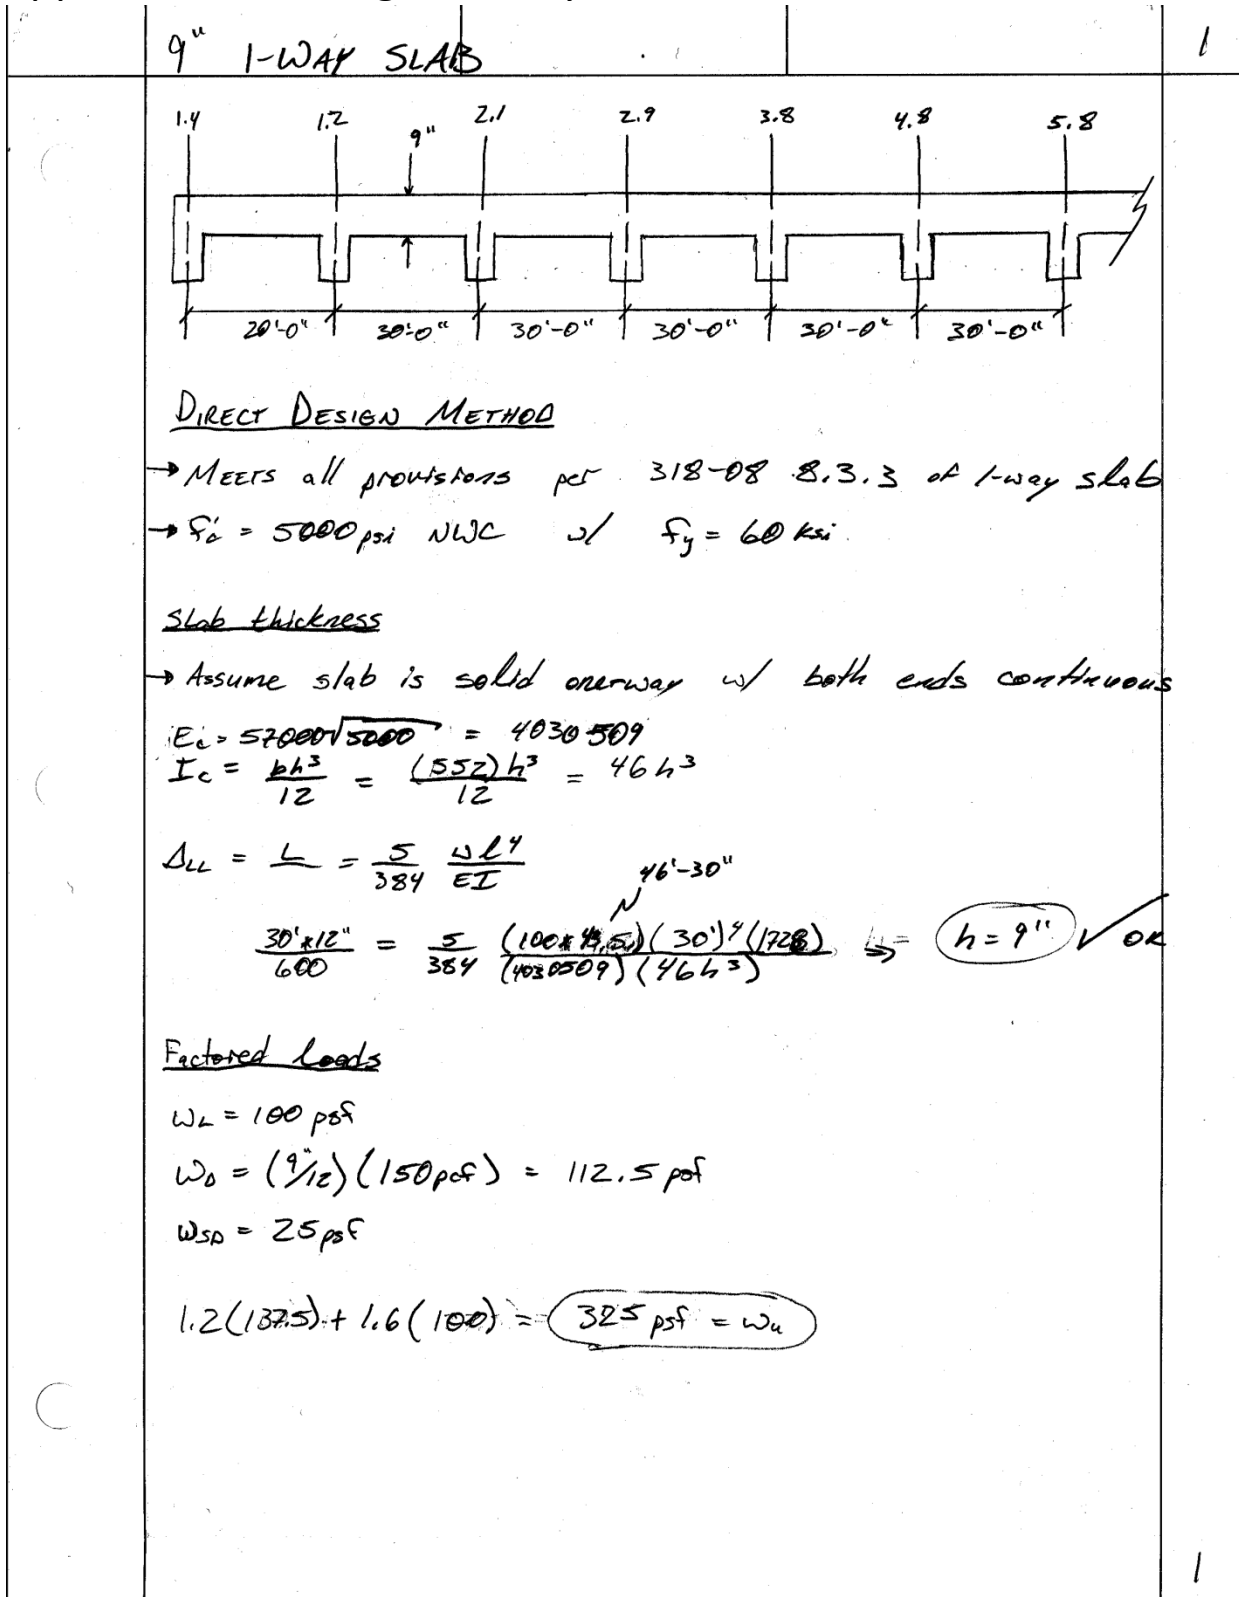 9" 1-WAY SLAB 1
1.4 1.2 2.1 2.9 3.8 4.8 5.8
9"
20'-0" 30'-0" 30'-0" 30'-0" 30'-0" 30'-0"
DIRECT DESIGN METHOD
→ MEETS all provisions per 318-08 8.3.3 of 1-way slab
→ f'c = 5000 psi NWC w/ fy = 60 ksi
Slab thickness
→ Assume slab is solid one-way w/ both ends continuous
Ec = 57000√5000 = 4030509
Ic = bh³/12 = (552)h³/12 = 46h³
ΔLL = L/ = 5/384 wl⁴/EI
46'-30"
30'*12"/600 = 5/384 (100*43.5)(30')⁴(1728)/(4030509)(46h³) ⇒ h = 9" ✓ OK
Factored loads
WL = 100 psf
WD = (9"/12)(150pcf) = 112.5 psf
WSD = 25psf
1.2(137.5) + 1.6(100) = 325 psf = wu
1